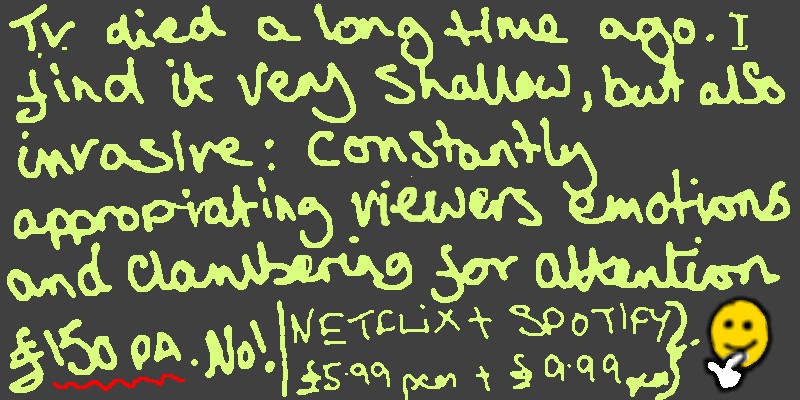 Tv. died a long time ago. I
find it very shallow, but also
invasive: constantly
appropriating viewers emotions
and clambering for attention
£150 PA. No! NETFLIX + SPOTIFY}.
£5.99 pcm + £9.99 pcm}